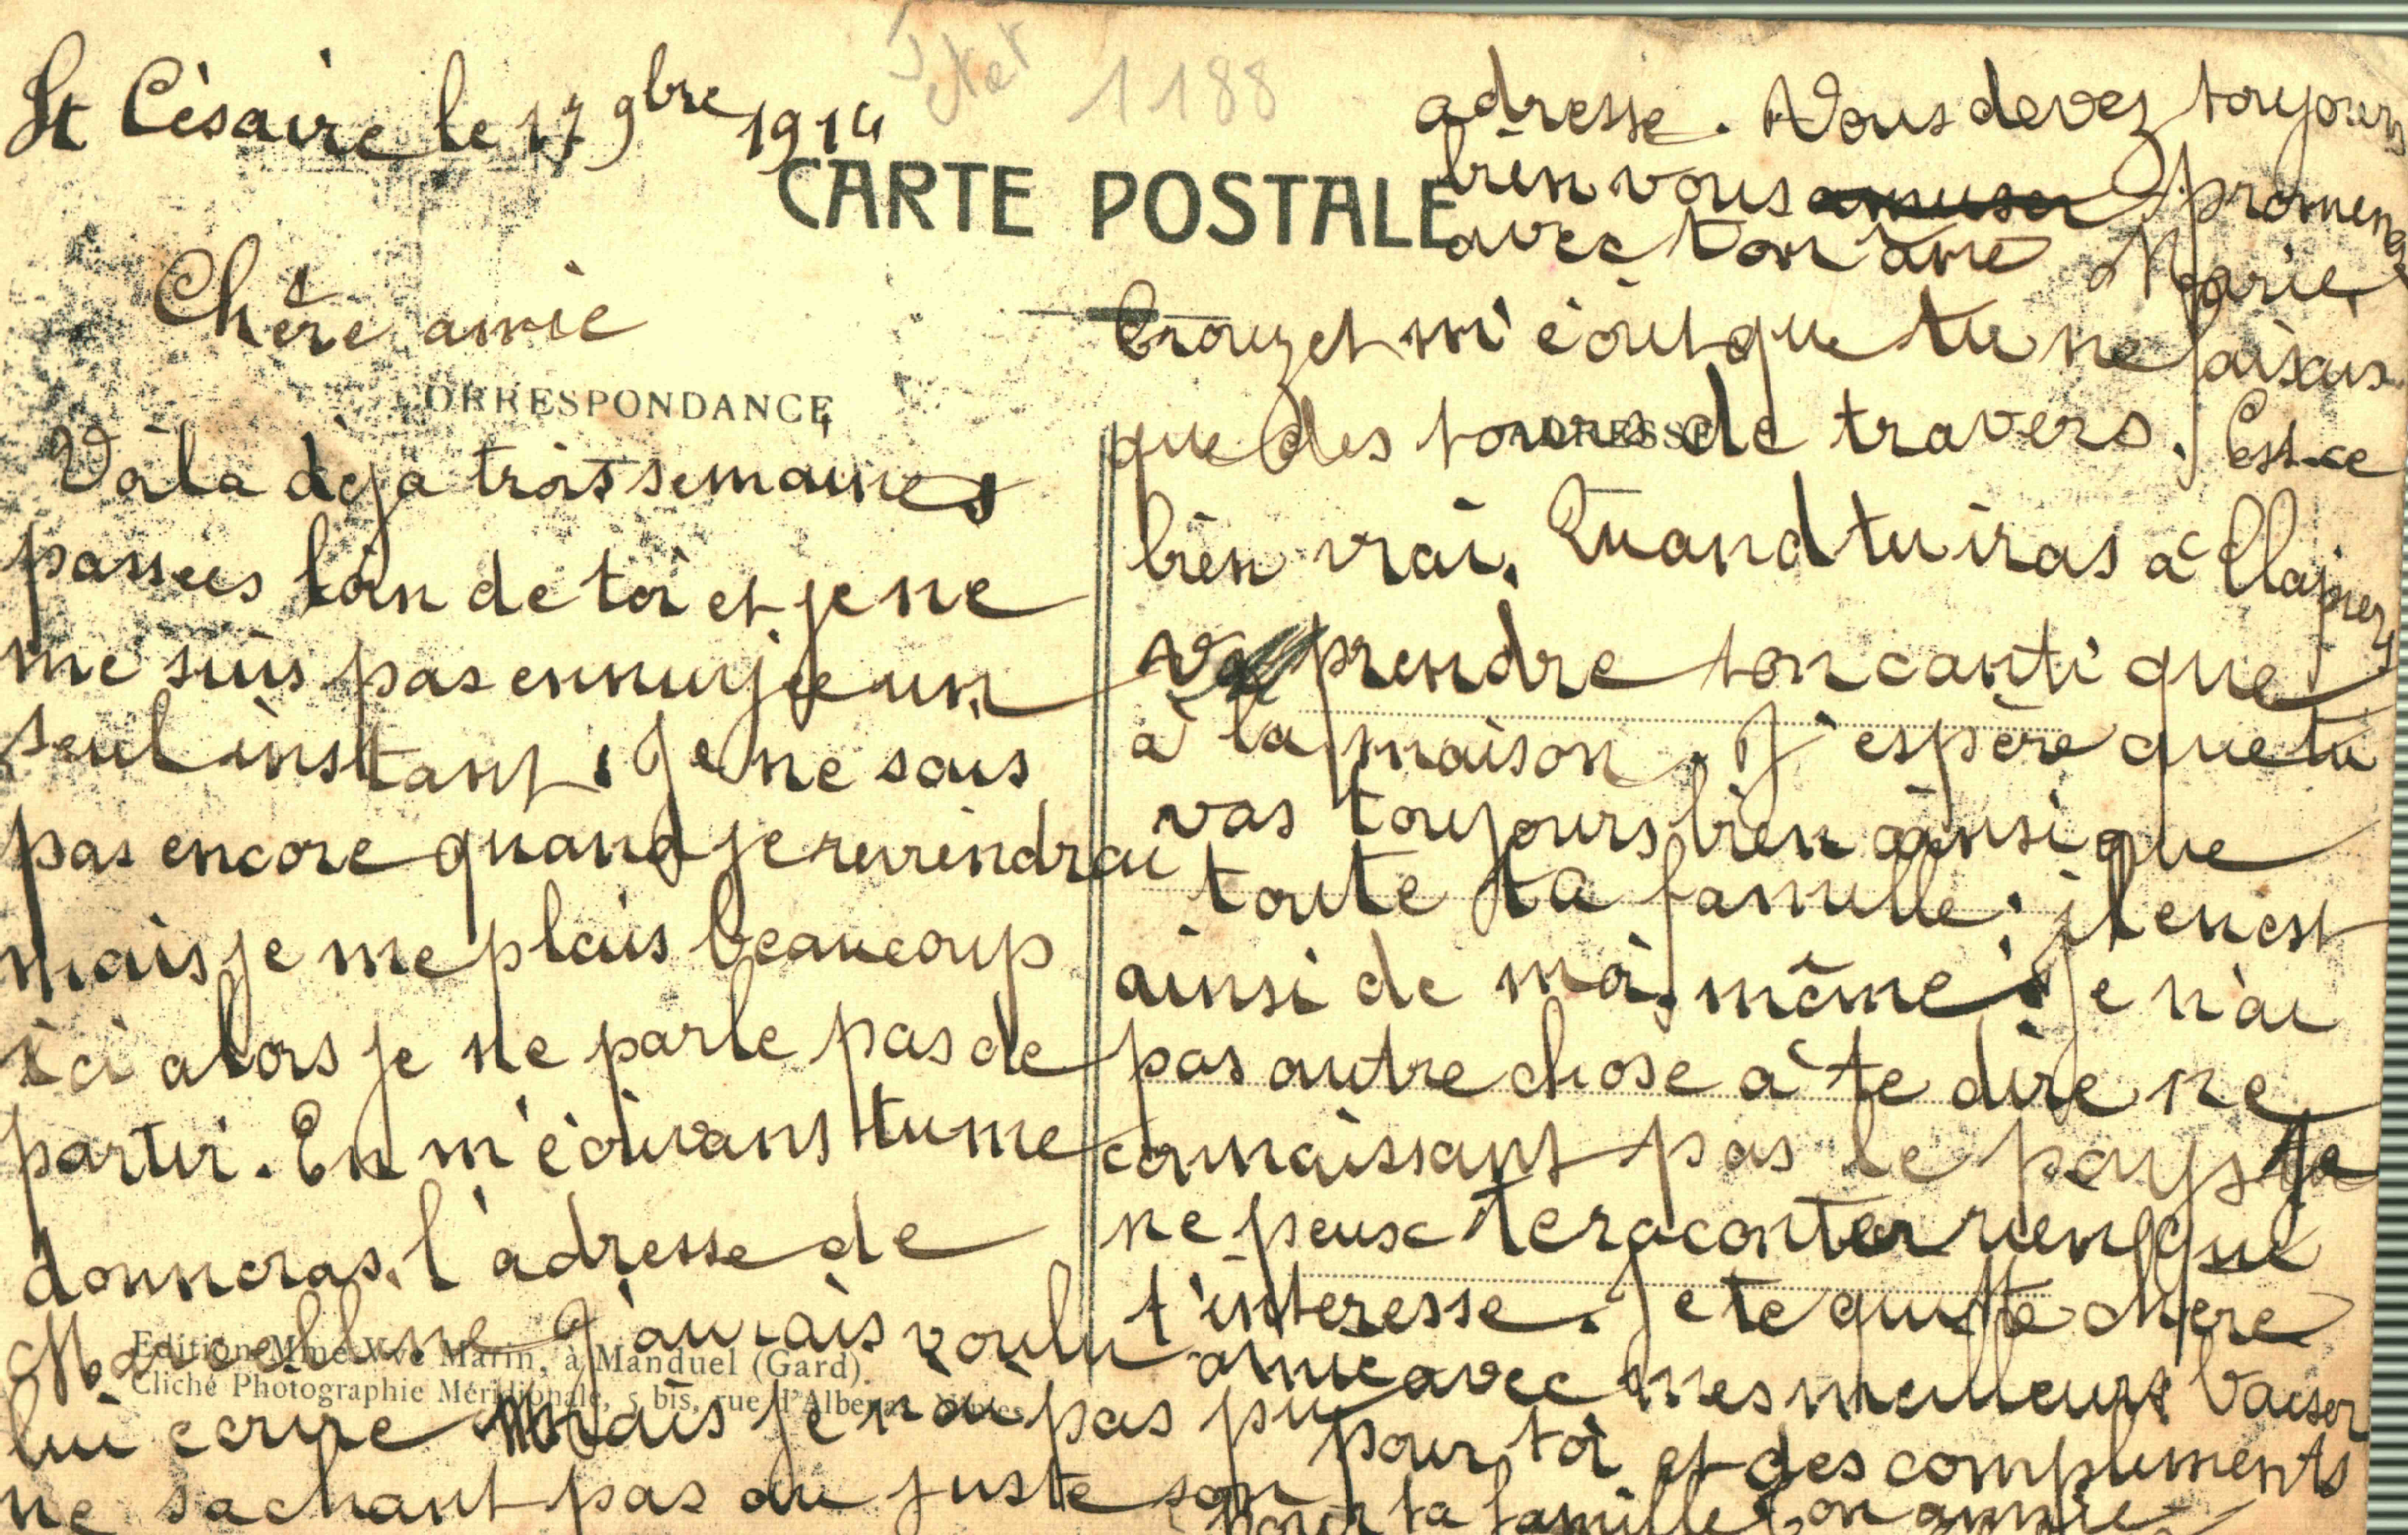 St Césaire le 17 9bre 1914
1188
CARTE POSTALE
Chère amie
CORRESPONDANCE
Voila déja trois semaines
passées loin de toi et je ne
me suis pas ennuyée un
seul instant. Je ne sais
pas encore quand je reviendrai
mais je me plais beaucoup
ici alors je ne parle pas de
partir. En m'écrivant tu me
donneras l'adresse de
Marcelline J'aurais voulu
Edition Mme Vve Marin, à Manduel (Gard).
Cliché Photographie Méridionale, 5 bis, rue d'Albenas, Nîmes
lui ecrire Mais je n'ai pas pu
ne sachant pas au juste son
adresse. Vous devez toujours
bien vous amuser promener
avec ton amie Marie
Crouzet m'écrit que tu ne faisais
ADRESSE
que des tours de travers. Est-ce
bien vrai. Quand tu iras à
Va prendre ton cantique
à la maison. J'espère que tu
vas toujours bien ainsi que
toute ta famille. il en est
ainsi de moi même. Je n'ai
pas autre chose à te dire ne
connaissant pas le pays je
ne peux te raconter rien qui
t'interesse. Je te quitte chère
amie avec mes meilleurs baiser
pour toi et des compliments
pour ta famille Ton amie